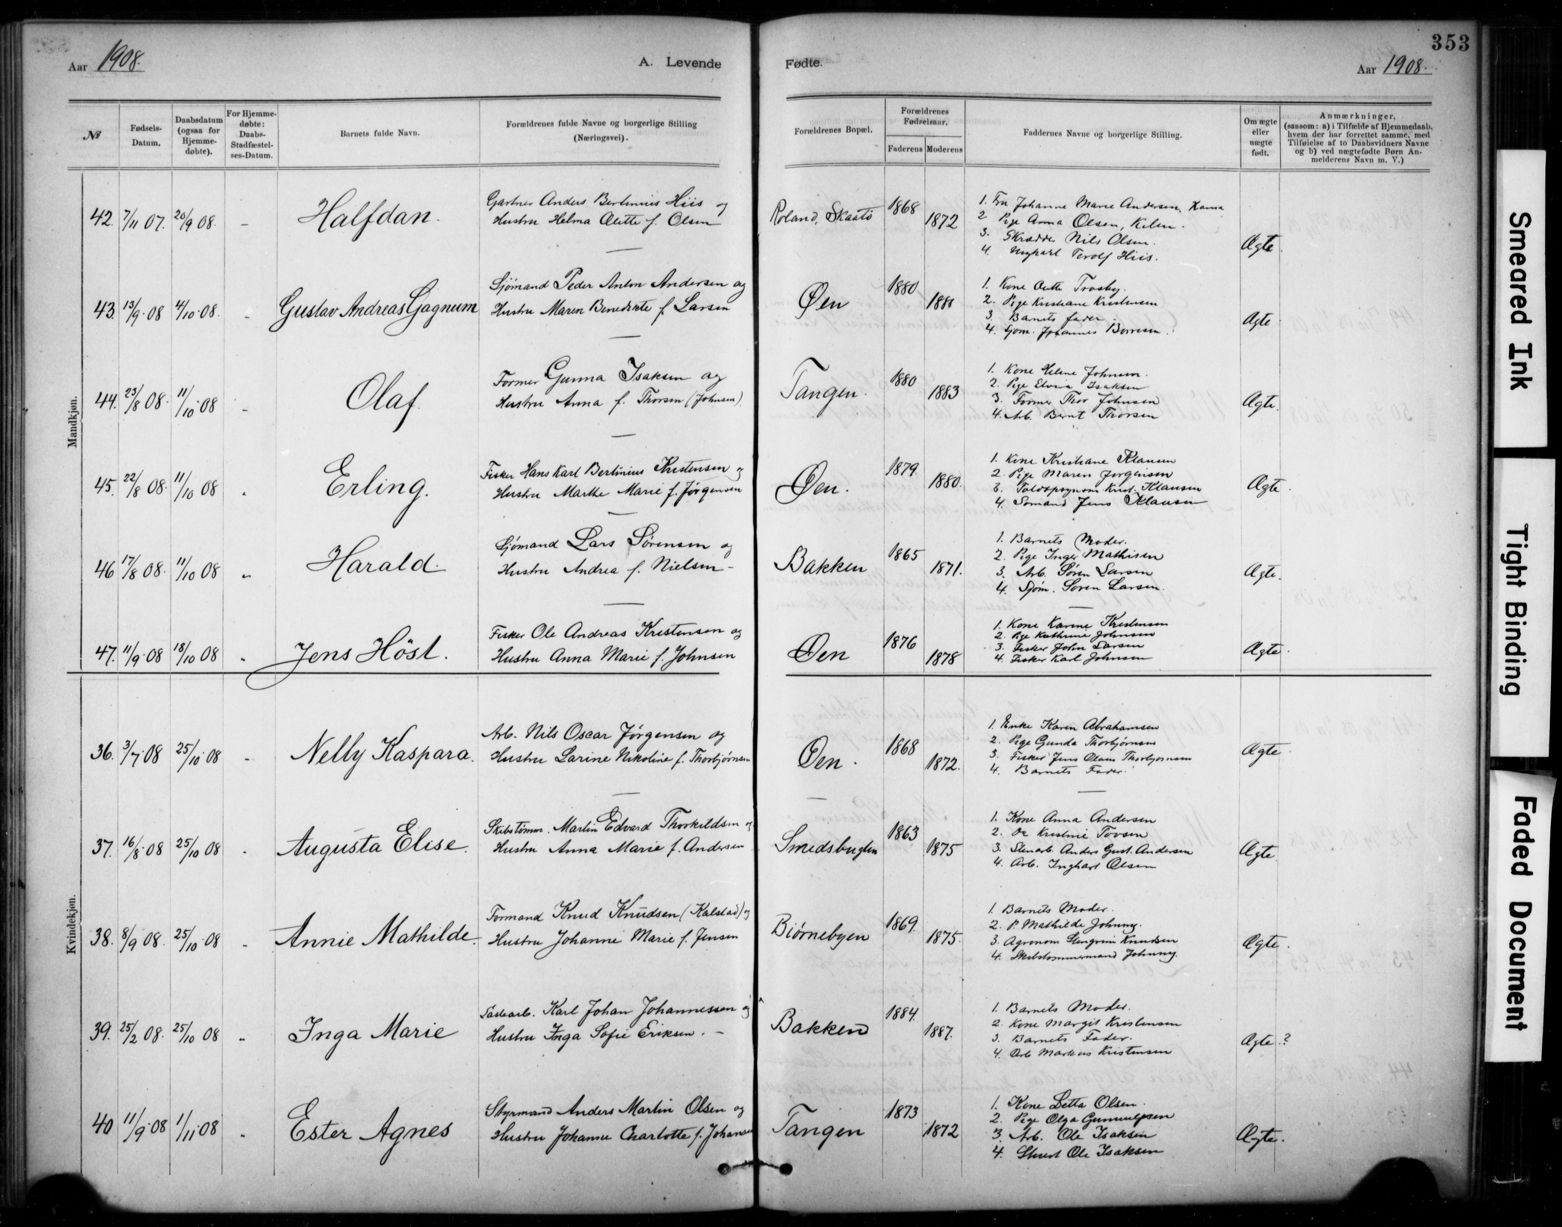 353
Aar 1908.
A. Levende Fødte.
Aar 1908.
№
Fødsels-Datum.
Daabsdatum (ogsaa for Hjemme-døbte).
For Hjemme-døbte: Daabs-Stadfæstel-ses-Datum.
Barnets fulde Navn.
Forældrenes fulde Navne og borgerlige Stilling (Næringsvei).
Forældrenes Bopæl.
Forældrenes Fødselsaar.
Faderens Moderens
Faddernes Navne og borgerlige Stilling.
Om ægte eller uægte født.
Anmærkninger,
(saasom: a) i Tilfælde af Hjemmedaab,
hvem der har forrettet samme, med
Tilføielse af to Daabsvidners Navne
og b) ved uægtefødte Børn An-
melderens Navn m. V.)
Mandkjøn.
42. 7/11 07. 20/9 08. Halfdan.
Gartner Anders Bertinius Hiis og
Hustru Helma Alette f. Olsen
Roland, Skaatø 1868 1872
1. Fru Johanne Marie Andersen,
2. Pige Anna Olsen, Kilen.
3. Skrædder Nils Olsen.
4. Ungkarl Hiis.
Ægte.
43. 13/9 08 4/10 08. Gustav Andreas Gagnum
Sjømand Peder Anton Andersen og
Hustru Maren Benedikte f. Larsen
Øen 1880 1881
1. Kone
2. Pige Kristiane Kristensen
3. Barnets fader.
4. Sjøm. Johannes
Ægte
44. 23/8 08. 11/10 08 Olaf.
Former Gunna Isaksen og
Hustru Anna f. Thorsen (Johnsen)
Tangen. 1880 1883
1. Kone Helene Johnsen.
2. Pige Isaksen
3. Former Thor Johnsen
4. Arb. Bernt Thorsen
Ægte.
45. 22/8 08. 11/10 08 Erling.
Fisker Hans Karl Bertinius Kristensen og
Hustru Marthe Marie f. Jørgensen
Øen. 1879 1880
1. Kone Kristiane Klausen
2. Pige Maren Jørgensen
3. Klausen
4. Sømand Jens Klausen
Ægte.
46 17/8 08. 11/10 08 Harald
Sjømand Lars Sørensen og
Hustru Andrea f. Nielsen
Bakken 1865 1871.
1. Barnets Moder.
2. Pige Inger Mathisen
3. Arb. Søren Larsen
4. Sjøm. Soren Larsen.
Ægte.
47. 11/9 08 18/10 08 Jens Höst.
Fisker Ole Andreas Kristensen og
Hustru Anna Marie f. Johnsen
Øen 1876 1878
1. Kone Karine Kristensen
2. Pige Kathrine Johnsen
3. Fisker John Larsen
4. Fisker Karl Johnsen
Ægte.
Kvindekjøn.
36. 3/7 08 25/10 08 Nelly Kaspara.
Arb. Nils Oscar Jørgensen og
Hustru Larine Nikoline f. Thorbjørnsen
Øen. 1868 1872.
1. Enke Karen Abrahamsen
2. Pige Gunda Thorbjørnsen
3. Fisker Jens Olaus Thorbjørnsen
4. Barnets Fader.
Ægte
37. 16/8 08 25/10 08 Augusta Elise.
Skibstømm. Martin Edvard Thorkildsen og
Hustru Anna Marie f. Andersen
Smedsbugten 1863 1875
1. Kone Anna Andersen
2.
3. Stenarb. Anders Gust. Andersen
4. Arb. Inghart Olsen
Ægte
38. 8/9 08. 25/10 08 Annie Mathilde.
Formand Knud Knudsen (Kalstad) og
Hustru Johanne Marie f. Jensen
Biørnebyen 1869 1875.
1. Barnets Moder.
2. P. Mathilde Johnny.
3. Agronom Knudsen
4. Skibstømmermand Johnny.
Ægte.
39. 25/2 08. 25/10 08 Inga Marie
Karl Johan Johannessen og
Hustru Inga Sofie Eriksen.
Bakken 1884 1887.
1. Barnets Moder.
2. Kone Margit Kristensen
3. Barnets Fader.
4. Arb Markus Kristensen
Ægte ?
40 11/9 08 1/11 08 Ester Agnes
Styrmand Anders Martin Olsen og
Hustru Johanne Charlotte f. Johansen
Tangen 1873 1872
1. Kone Letta Olsen.
2. Pige Olga
3. Arb. Ole Isaksen
4. Ole Isaksen
Ægte.
Smeared Ink
Tight Binding
Faded Document